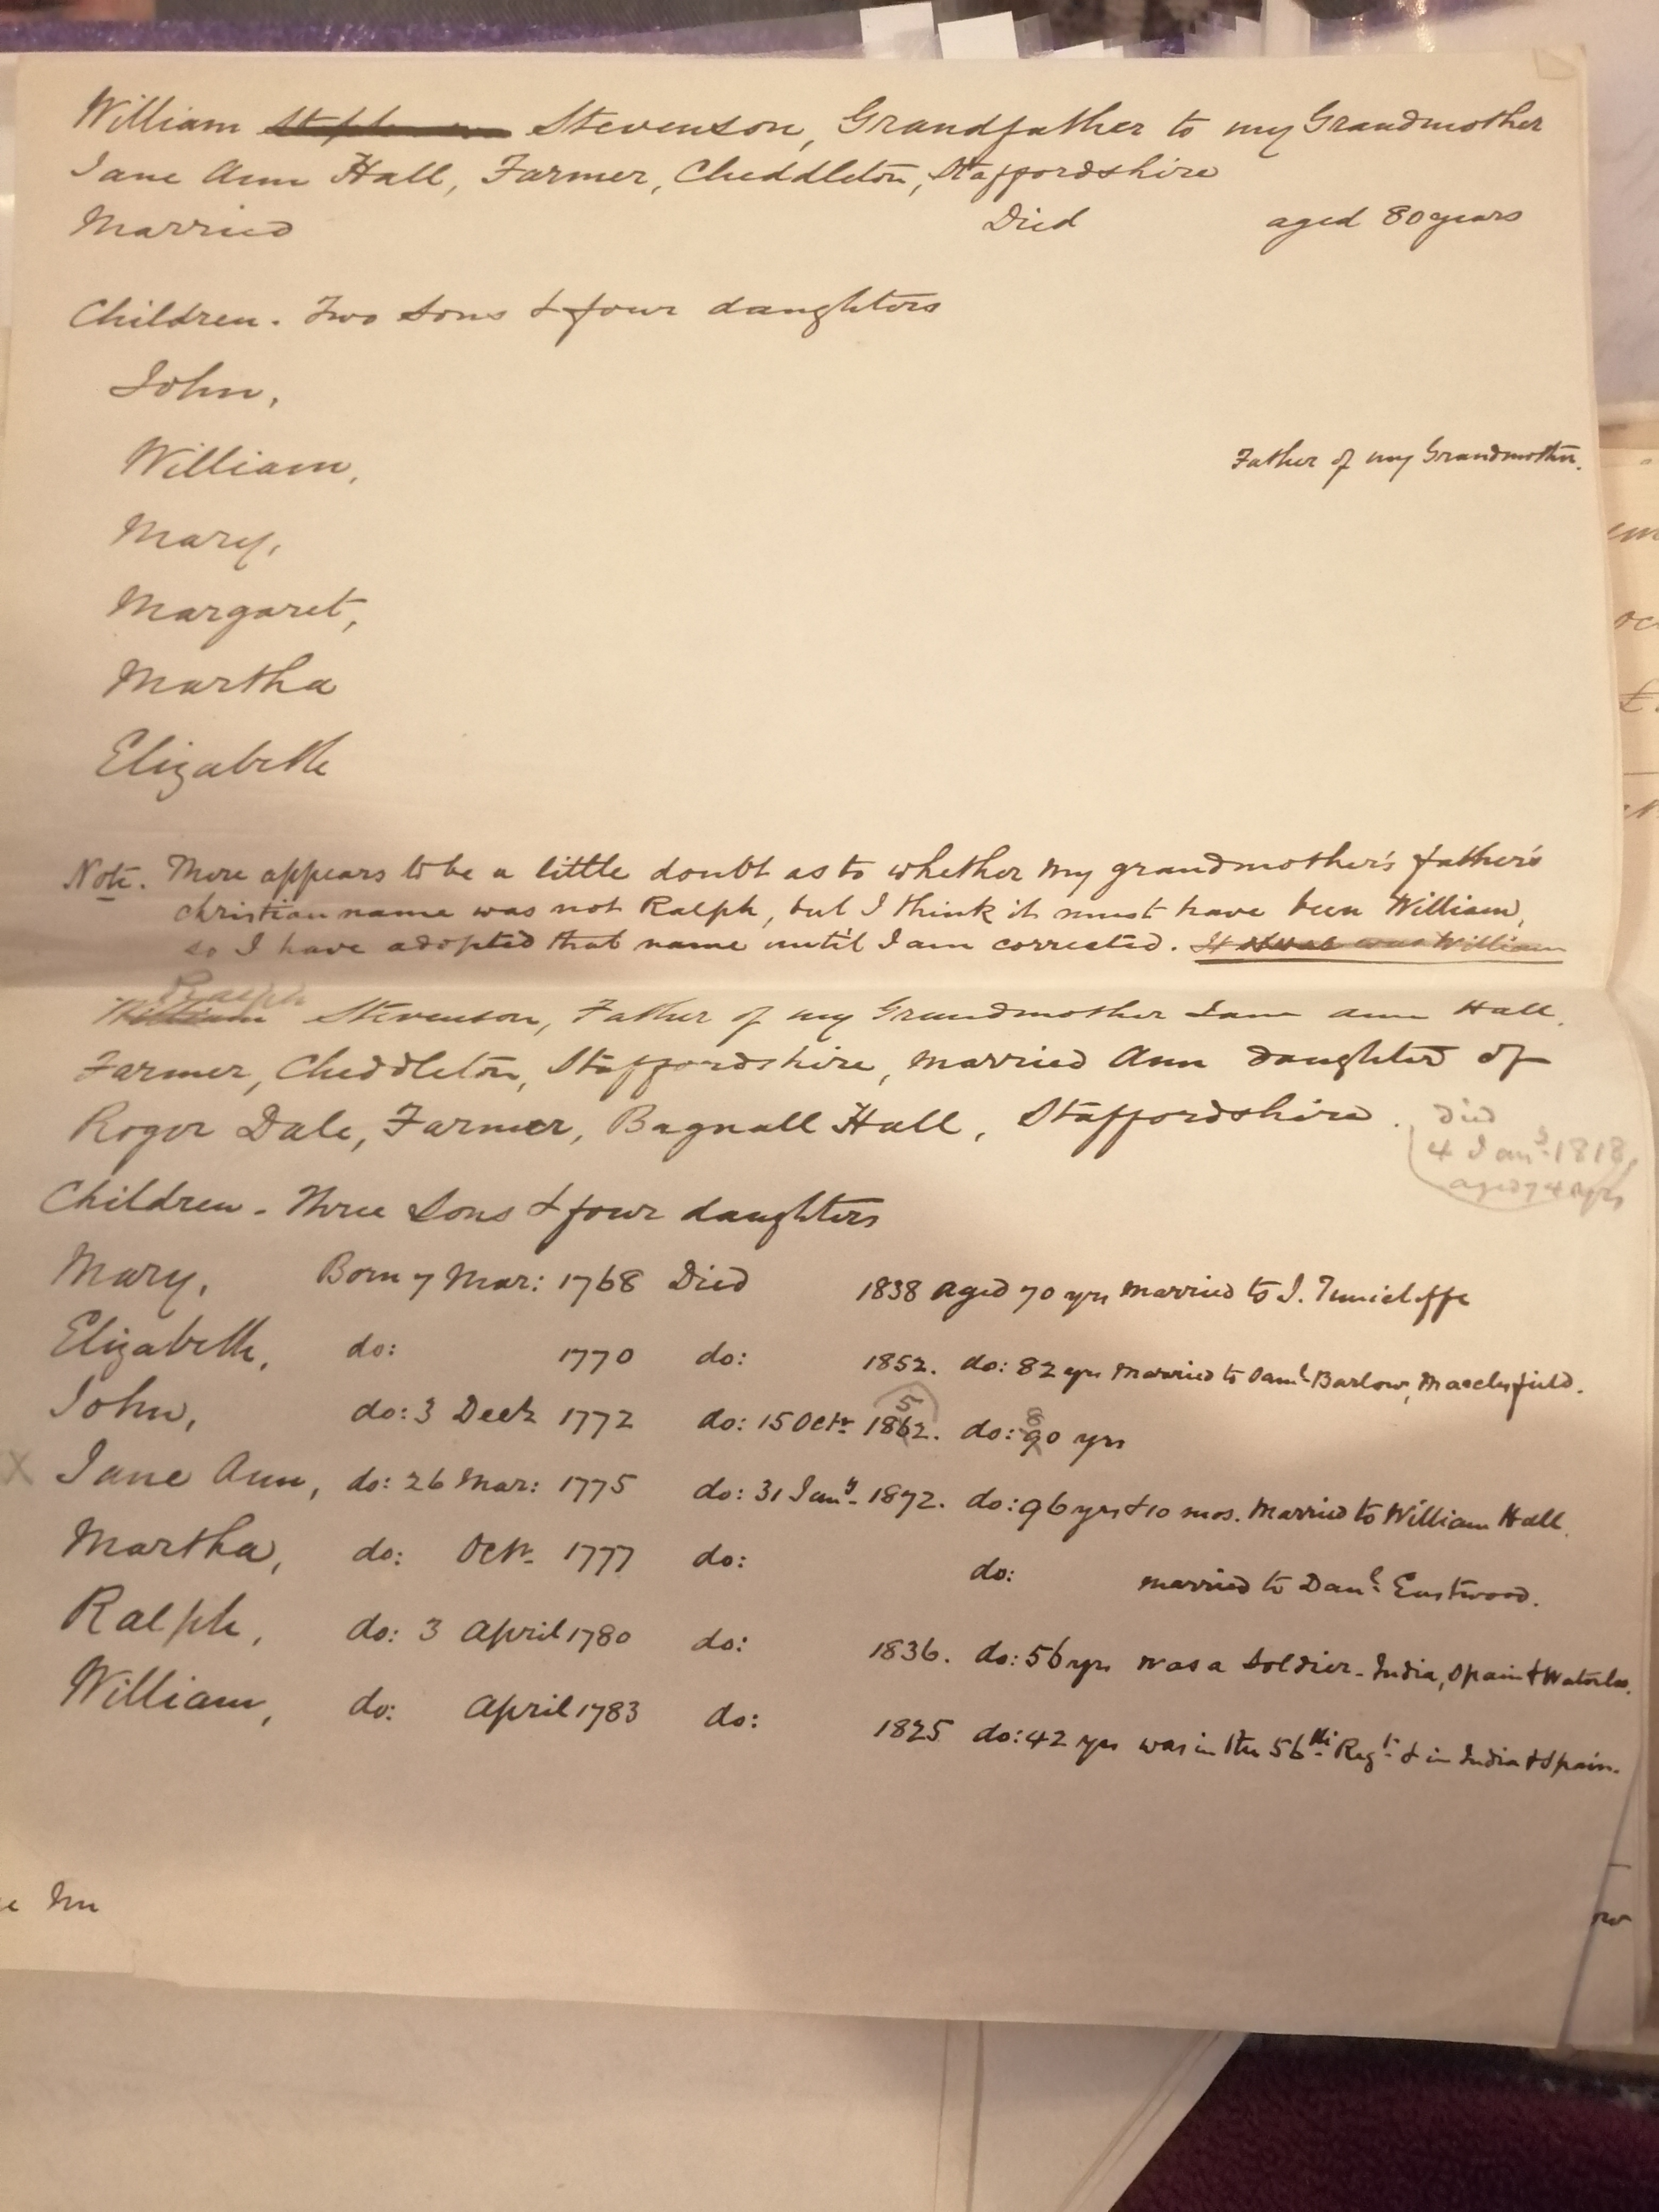 William Stephenson Stevenson, Grandfather to my Grandmother
Jane Ann Hall, Farmer, Cheddleton, Staffordshire
Married Died aged 80 years
Children. Two Sons & four daughters
John,
William, Father of my Grandmother.
Mary,
Margaret,
Martha
Elizabeth
Note. There appears to be a little doubt as to whether my grandmother's father's
christian name was not Ralph, but I think it must have been William,
so I have adopted that name until I am corrected. It was William
Ralph
William Stevenson, Father of my Grandmother Jane Ann Hall.
Farmer, Cheddleton, Staffordshire, married Ann daughter of
Roger Dale, Farmer, Bagnall Hall, Staffordshire.
died
4 Jany. 1818,
aged 74 yrs
Children - Three Sons & four daughters
Mary, Born 7 Mar: 1768 Died 1838 aged 70 yrs married to J. Tunicliffe
Elizabeth, do: 1770 do: 1852. do: 82 yrs married to Saml. Barlow, Macclesfield.
5 8
John, do: 3 Decr. 1772 do: 15 Octr. 1862. do: 90 yrs
X Jane Ann, do: 26 Mar: 1775 do: 31 Jany. 1872. do: 96 yrs & 10 mos. Married to William Hall.
Martha, do: Octr. 1777 do: do: married to Danl. Eastwood.
Ralph, do: 3 April 1780 do: 1836. do: 56 yrs was a Soldier - India, Spain & Waterloo.
William, do: April 1783 do: 1825 do: 42 yrs was in the 56th. Regt. & in India & Spain.